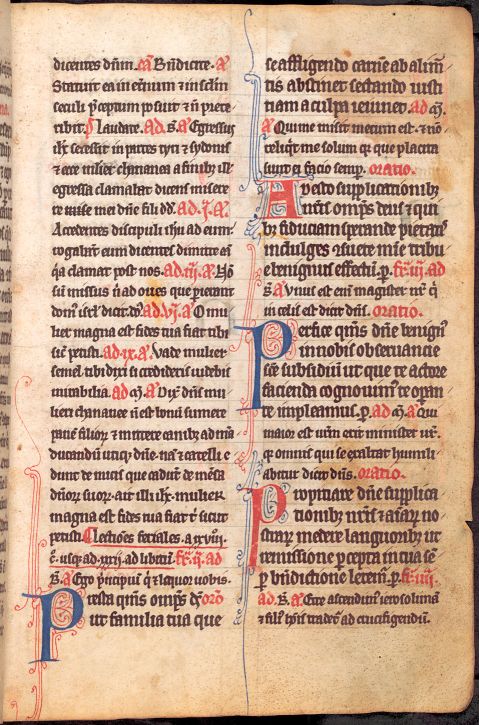 dicentes dn̄m. ca͞ Bn̄dicite. a͞
Statuit ea in et̄num ⁊ in sc̄lm
seculi p̄ceptum posuit ⁊ nō p̄rete
ribit. p̄ laudate. ad. b͞. a͞ Egressus
ihc̄ secessit in partes tyri ⁊ sydonis
⁊ ecce mulier chananea a finib; ill
egressa clamabat dicens misere
re mihi dn̄e fili dd̄. ad. j. a͞.
Accedentes discipuli ihū ad eum
rogabāt eum dicentes dimitte eā
q̄a clamat post nos. ad. iij. a͞. Nō
sum missus n̄ ad oves que perierant
dom̄ isrl̄ dicit dn̄s. ad. vj. a͞. O mu
lier magna est fides tua fiat tibi
sic̄ petisti. ad. ix. a͞. Vade mulier
semel tibi dixi si credideris videbis
mirabilia. ad. m̄. a͞. Dix̄ dn̄s mu
lieri chananee nō est bonū sumere
panē filior; ⁊ mittere canib; ad mā
ducandū utiq; dn̄e. nā ⁊ catelli e
dunt de micis que cadūt de mēsa
dn̄or; suor; ait illi ihc̄. mulier
magna est fides tua fiat t͞ sicut
petisti. Lectiōes feriales. a xxviij.
c̄. usq; ad. xxxij. ad libitū. fr̄. ij. ad
b͞. a͞ Ego principiū q̄ ⁊ loquor vobis.
Presta qm̄s omp̄s d̄s oro͞
ut familia tua que
se affligendo carnē ab alim̄
tis abstinet sectando iusti
tiam a culpa ieiunet. ad. m̄.
a͞ Qui me misit mecum est. ⁊ nō
reliqt̄ me solum q; que placita
sunt ei facio semp̄. oratio.
Adesto supplicationib;
nr̄is omp̄s deus ⁊ qui
b; fiduciam sperande pietatis
indulges ⁊suete mīe tribu
e benignus effectū. p̄. fr̄. iij. ad
b͞. a͞ Unus est eni magister vr̄ q̄
in celis est dicit dn̄s. oratio.
Perfice qm̄s dn̄e benign̄
in nobis observancie
sc̄e subsidiū ut que te actore
facienda cognovim; te opan
te impleamus. p̄. ad. m̄. a͞ Qui
maior est vr̄m erit minister vr̄.
q; omnis qui se exaltat humili
abitur dicit dn̄s. oratio.
Propitiare dn̄e supplica
tionib; nr̄is ⁊ aīar; no
strar; medere languorib; ut
remissione p̄cepta in tua sē
p̄ bn̄dictione letem̄. p̄. fr̄. iiij.
ad. b͞. a͞. Ecce ascendim; ierosolimā
⁊ fili; hoīs tradet̄ ad crucifigendū.